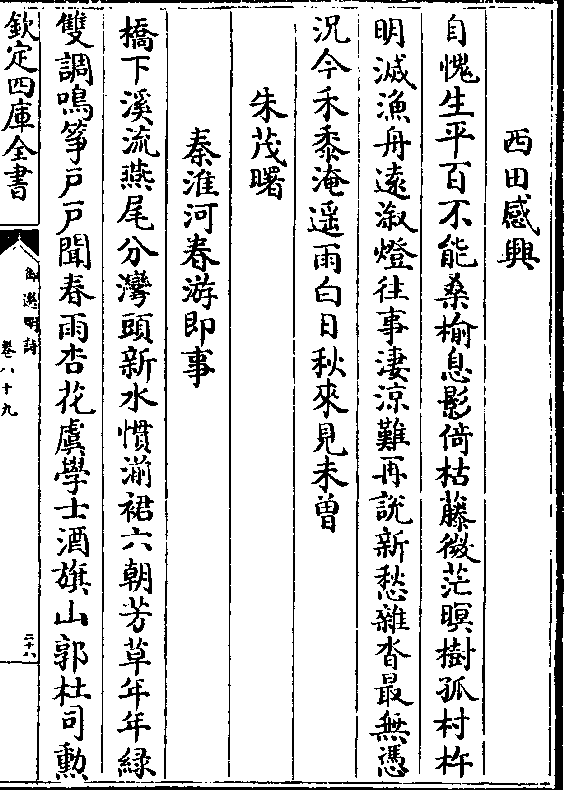 西田感興
自愧生平百不能桑榆息影倚枯藤微茫暝樹孤村杵
明滅漁舟遠溆燈往事淒涼難再說新愁雜沓最無憑
況今禾黍淹遥雨白日秋來見未曾
朱茂曙
秦淮河春游即事
橋下溪流燕尾分灣頭新水慣湔裙六朝芳草年年緑
雙調鳴箏戸戸聞春雨杏花虞學士酒旗山郭杜司勲
欽定四庫全書
御選明詩
卷八十九
二十八